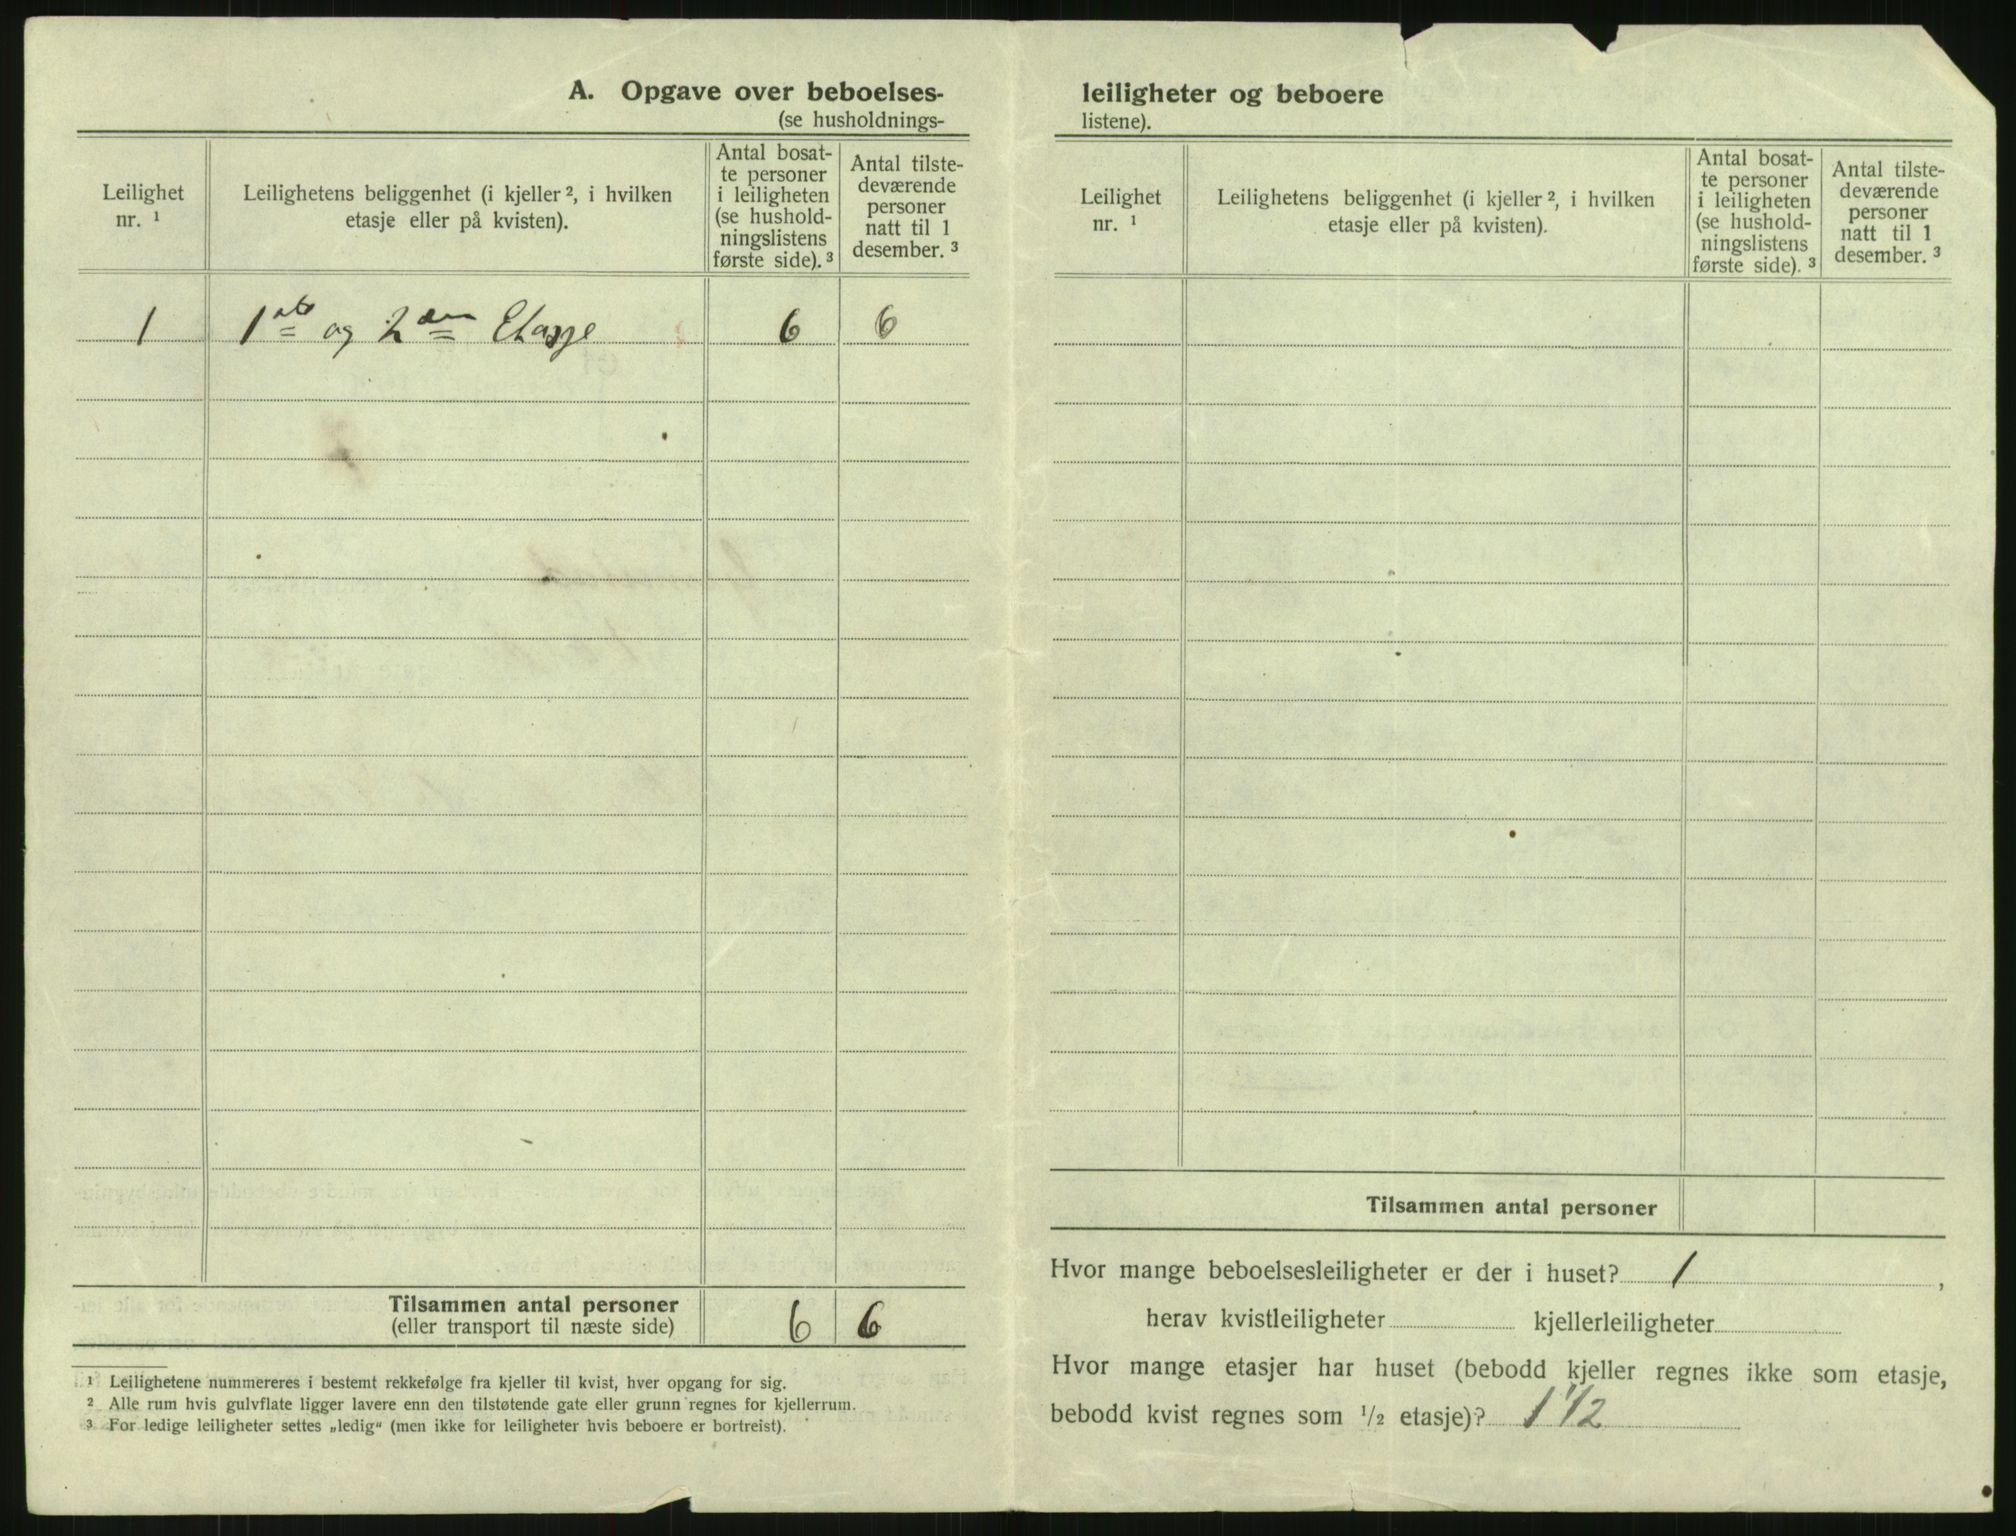 A. Opgave over beboelses-
(se husholdnings-
Leilighet
nr. ¹
Leilighetens beliggenhet (i kjeller ², i hvilken
etasje eller på kvisten).
Antal bosat-
te personer
i leiligheten
(se hushold-
ningslistens
første side). ³
Antal tilste-
deværende
personer
natt til 1
desember. ³
1 1ste og 2den Etasje 6 6
Tilsammen antal personer
(eller transport til næste side)
6 6
¹ Leilighetene nummereres i bestemt rekkefølge fra kjeller til kvist, hver opgang for sig.
² Alle rum hvis gulvflate ligger lavere enn den tilstøtende gate eller grunn regnes for kjellerrum.
³ For ledige leiligheter settes „ledig“ (men ikke for leiligheter hvis beboere er bortreist).
leiligheter og beboere
listene).
Leilighet
nr. ¹
Leilighetens beliggenhet (i kjeller ², i hvilken
etasje eller på kvisten).
Antal bosat-
te personer
i leiligheten
(se hushold-
ningslistens
første side). ³
Antal tilste-
deværende
personer
natt til 1
desember. ³
Tilsammen antal personer
Hvor mange beboelsesleiligheter er der i huset? 1,
herav kvistleiligheter kjellerleiligheter
Hvor mange etasjer har huset (bebodd kjeller regnes ikke som etasje,
bebodd kvist regnes som ½ etasje)? 1 1/2